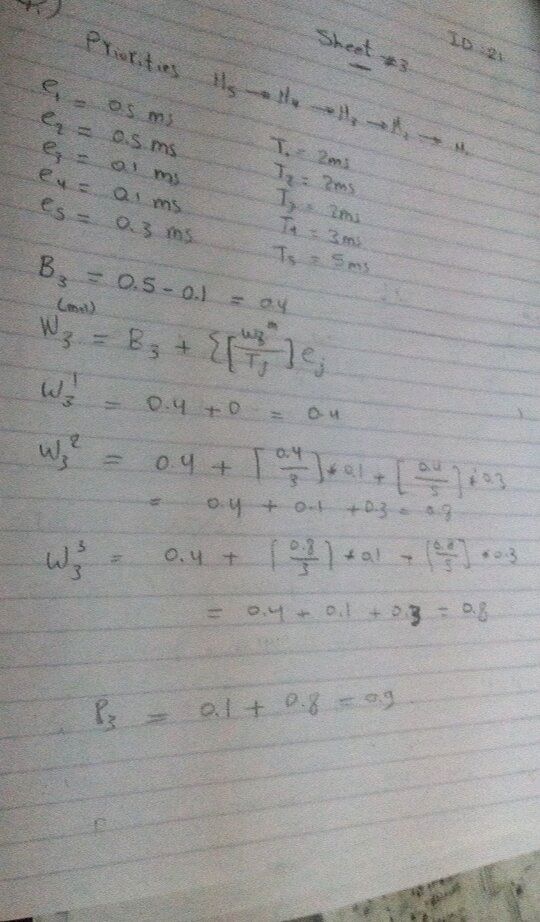 Sheet #3
ID: 21
Priorities H5 → H4 → H3 → H2 → H1
e1 = 0.5 ms
e2 = 0.5 ms
e3 = 0.1 ms
e4 = 0.1 ms
e5 = 0.3 ms
T1 = 2ms
T2 = 2ms
T3 = 2ms
T4 = 3ms
T5 = 5ms
B3 = 0.5 - 0.1 = 0.4
W3^(m+1) = B3 + Σ⌈W3^m / Tj⌉ ej
W3^1 = 0.4 + 0 = 0.4
W3^2 = 0.4 + ⌈0.4/3⌉ * 0.1 + ⌈0.4/5⌉ * 0.3
= 0.4 + 0.1 + 0.3 = 0.8
W3^3 = 0.4 + ⌈0.8/3⌉ * 0.1 + ⌈0.8/5⌉ * 0.3
= 0.4 + 0.1 + 0.3 = 0.8
R3 = 0.1 + 0.8 = 0.9